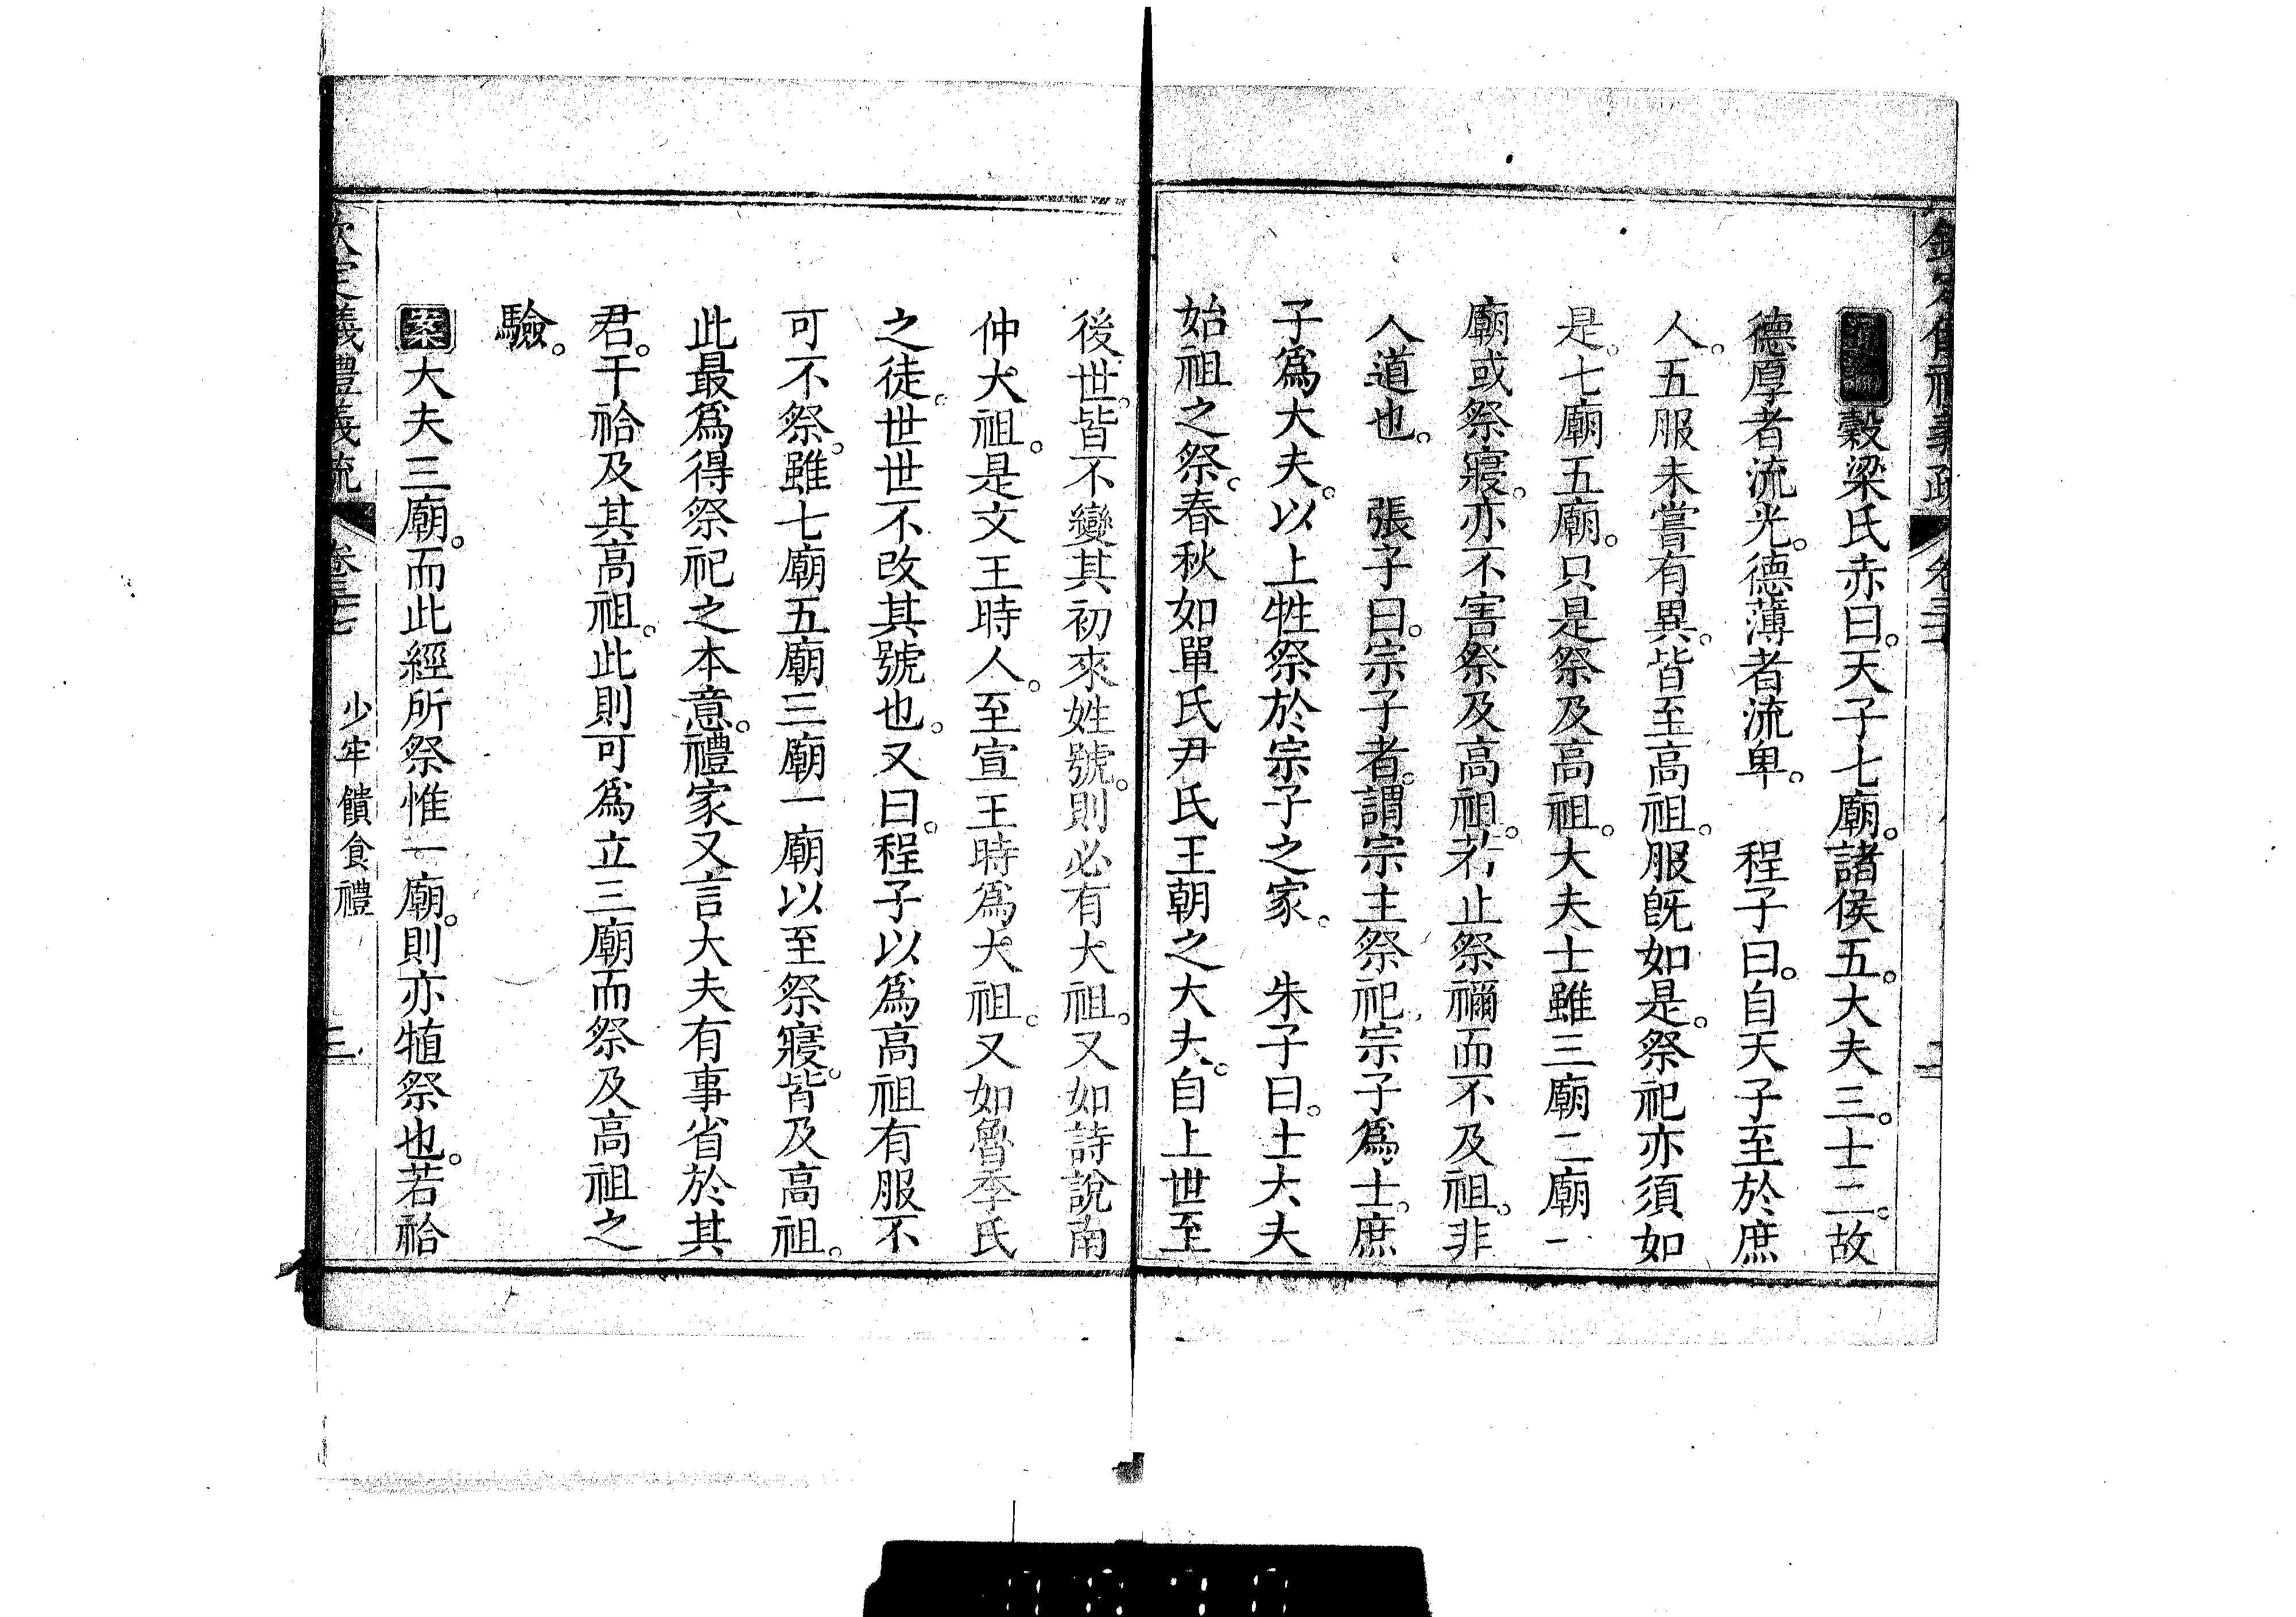 欽定儀禮義疏 卷三十七
穀梁氏赤曰。天子七廟。諸侯五。大夫三。士二。故
德厚者流光。德薄者流卑。 程子曰。自天子至於庶
人。五服未嘗有異。皆至高祖。服旣如是。祭祀亦須如
是。七廟五廟。只是祭及高祖。大夫士雖三廟二廟一
廟或祭寢。亦不害祭及高祖。若止祭禰而不及祖。非
人道也。 張子曰。宗子者。謂宗主祭祀。宗子爲士。庶
子爲大夫。以上牲祭於宗子之家。 朱子曰。士大夫
始祖之祭。春秋如單氏尹氏王朝之大夫。自上世至
後世。皆不變其初來姓號。則必有大祖。又如詩說南
仲大祖。是文王時人。至宣王時爲大祖。又如魯季氏
之徒。世世不改其號也。又曰。程子以爲高祖有服不
可不祭。雖七廟五廟三廟一廟以至祭寢。皆及高祖。
此最爲得祭祀之本意。禮家又言大夫有事省於其
君。干祫及其高祖。此則可爲立三廟而祭及高祖之
驗。
案大夫三廟。而此經所祭惟一廟。則亦犆祭也。若祫
欽定儀禮義疏 卷三十七 少牢饋食禮 三